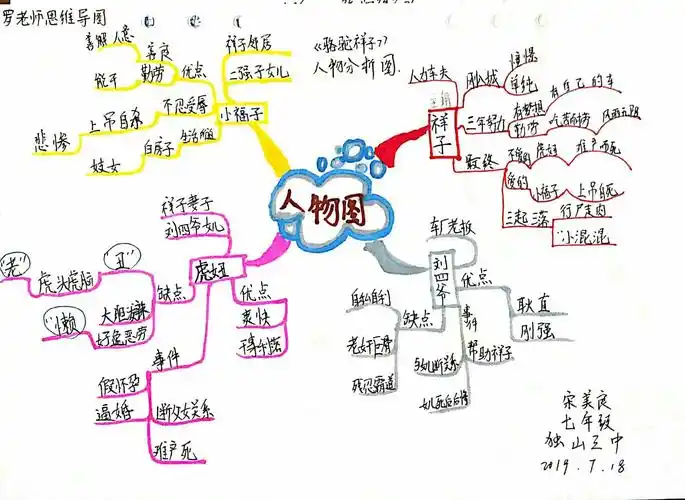 罗老师思维导图
《骆驼祥子》
人物分析图
人物图
小福子
祥子邻居
二强子女儿
优点
善良
善解人意
勤劳
能干
不忍受辱
上吊自杀
悲惨
生活所迫
白房子
妓女
祥子
主角
人力车夫
刚入城
憧憬
单纯
三年努力
有梦想
有自己的车
勤劳
吃苦耐劳
风雨无阻
最终
不爱的
虎妞
难产而死
爱的
小福子
上吊自死
三起三落
行尸走肉
小混混
虎妞
祥子妻子
刘四爷女儿
缺点
"丑"
虎头虎脑
"老"
大胆泼辣
好逸恶劳
"懒"
优点
爽快
事件
假怀孕
逼婚
断父女关系
难产死
刘四爷
车厂老板
优点
耿直
刚强
缺点
自私自利
老奸巨猾
残忍霸道
事件
帮助祥子
与女断关系
女儿死后后悔
宋美良
七年级
独山三中
2019.7.18